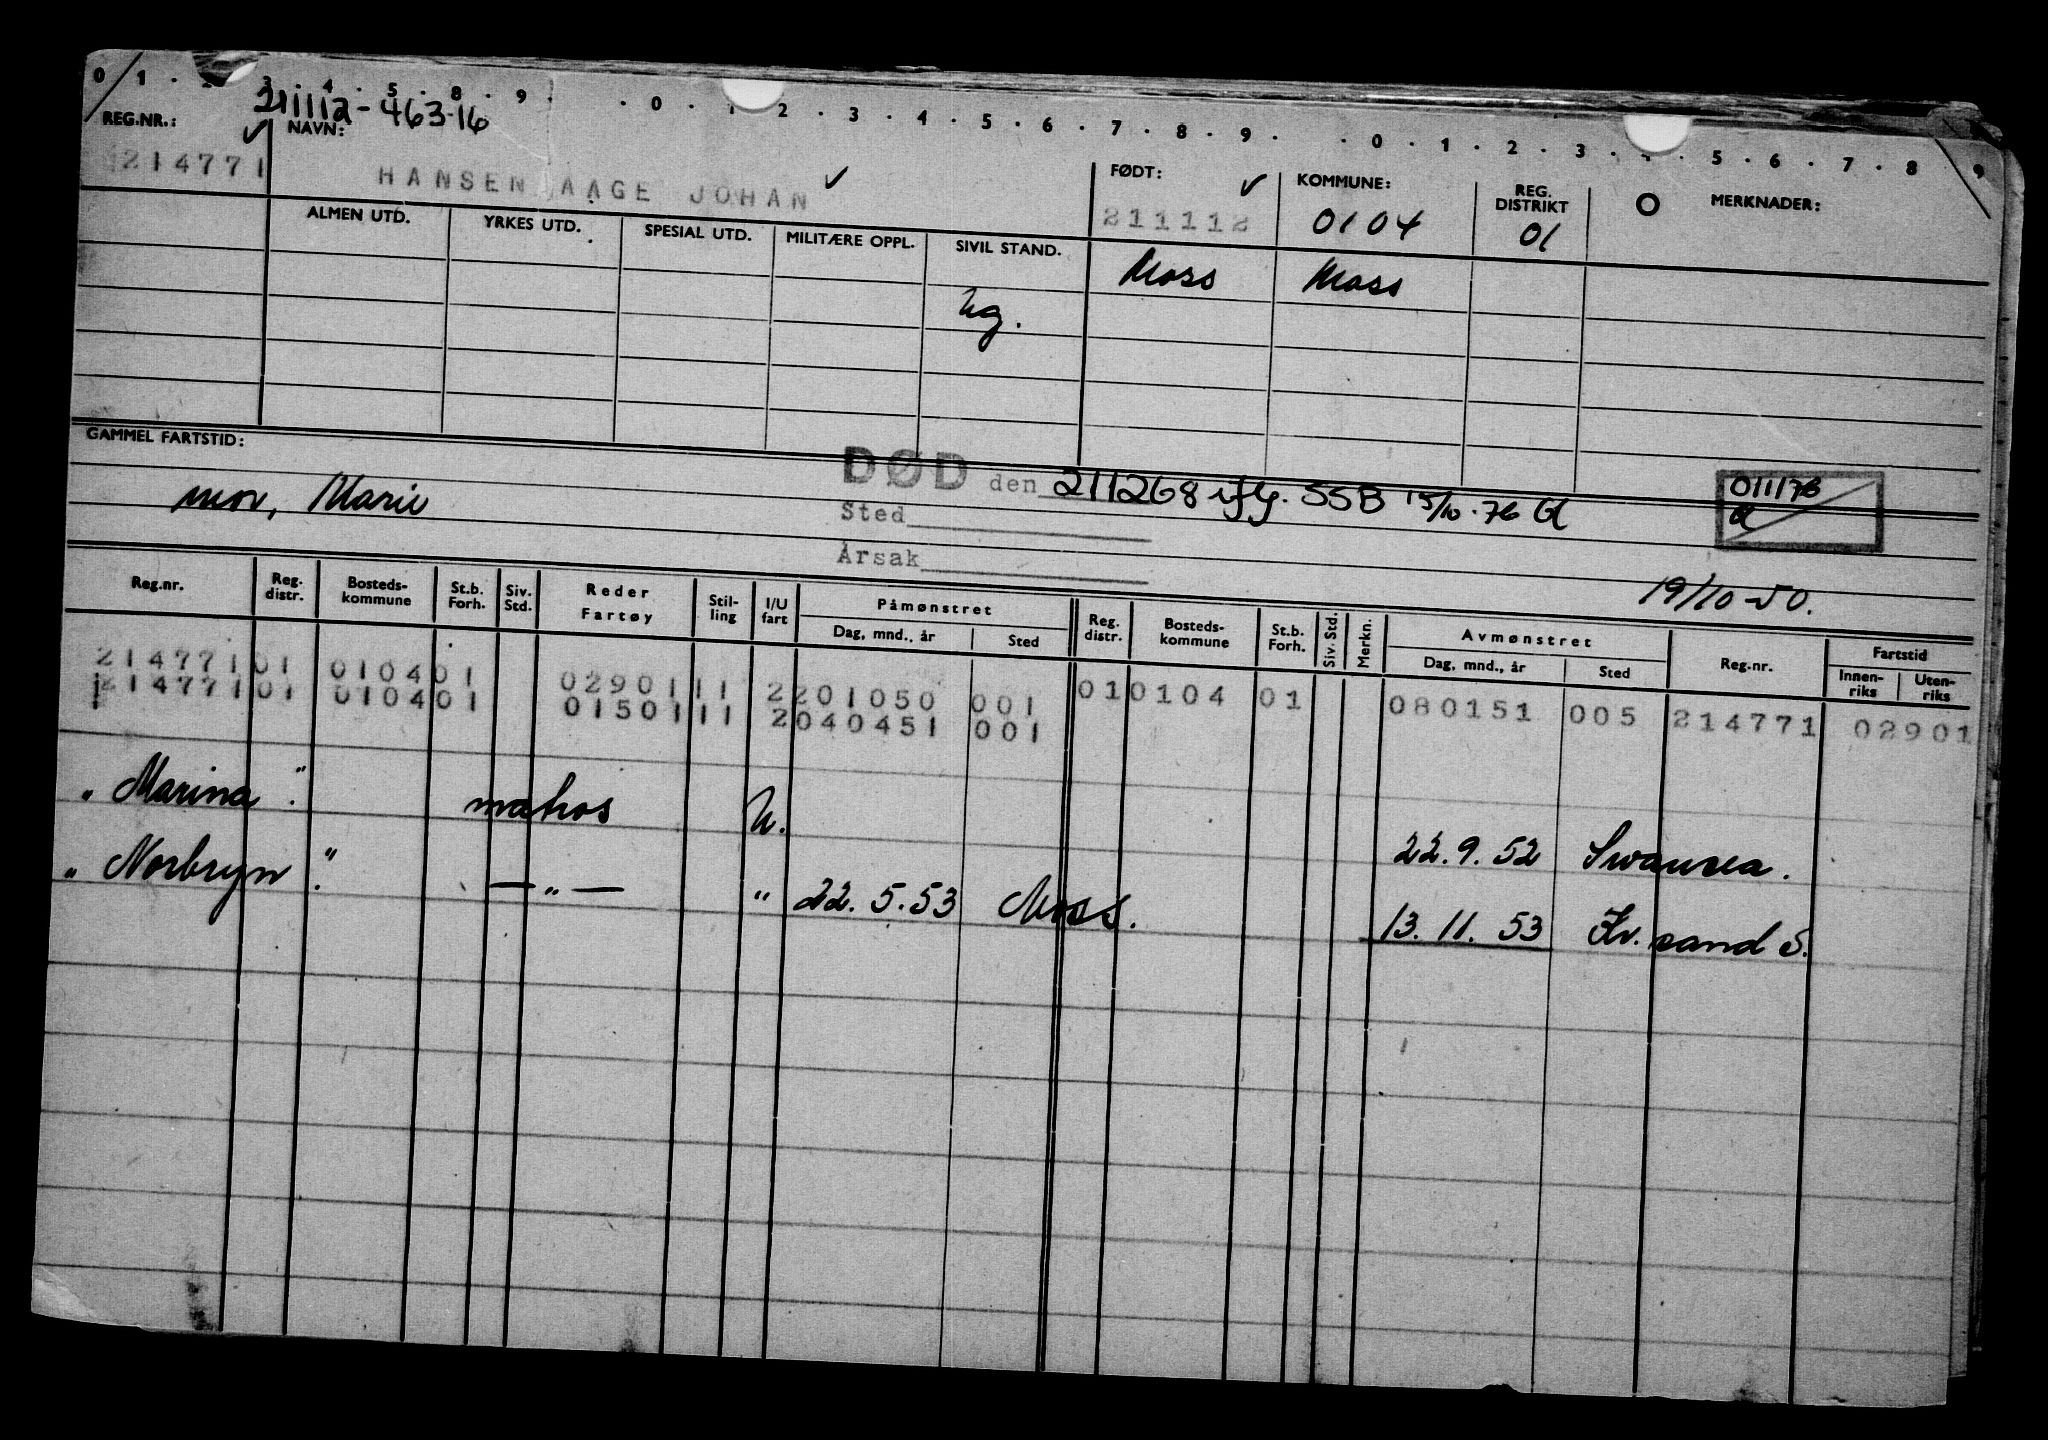 0 1 · 3 · 4 · 5 · 8 · 9 · · 0 · 1 2 · 3 · 4 · 5 · 6 · 7 · 8 · 9 · · 0 · 1 · 2 · 3 · 4 · 5 · 6 · 7 · 8 · 9
211112-463-16
REG.NR.: ✓ NAVN: FØDT: ✓ KOMMUNE: REG. DISTRIKT O MERKNADER:
214771 HANSEN AAGE JOHAN ✓ 211112 0104 01
ALMEN UTD. YRKES UTD. SPESIAL UTD. MILITÆRE OPPL. SIVIL STAND. Moss Moss
Ug.
GAMMEL FARTSTID:
DØD den 211268 iflg. SSB 15/10-76 011176
mor, Marie Sted
Årsak
19/10-50.
Reg.nr. Reg. distr. Bosteds-kommune St.b. Forh. Siv. Std. Reder Fartøy Stil-ling I/U fart Påmønstret Dag, mnd., år Sted Reg. distr. Bosteds-kommune St.b. Forh. Siv. Std. Merkn. Avmønstret Dag, mnd., år Sted Reg.nr. Fartstid Innen-riks Uten-riks
214771 01 0104 01 02901 11 2 201050 001 01 0104 01 080151 005 214771 02901
214771 01 0104 01 01501 11 2 040451 001
"Marina". matros U. 22.9.52 Swansea.
"Norbryn". — " — " 22.5.53 Moss. 13.11.53 Kr.sand S.